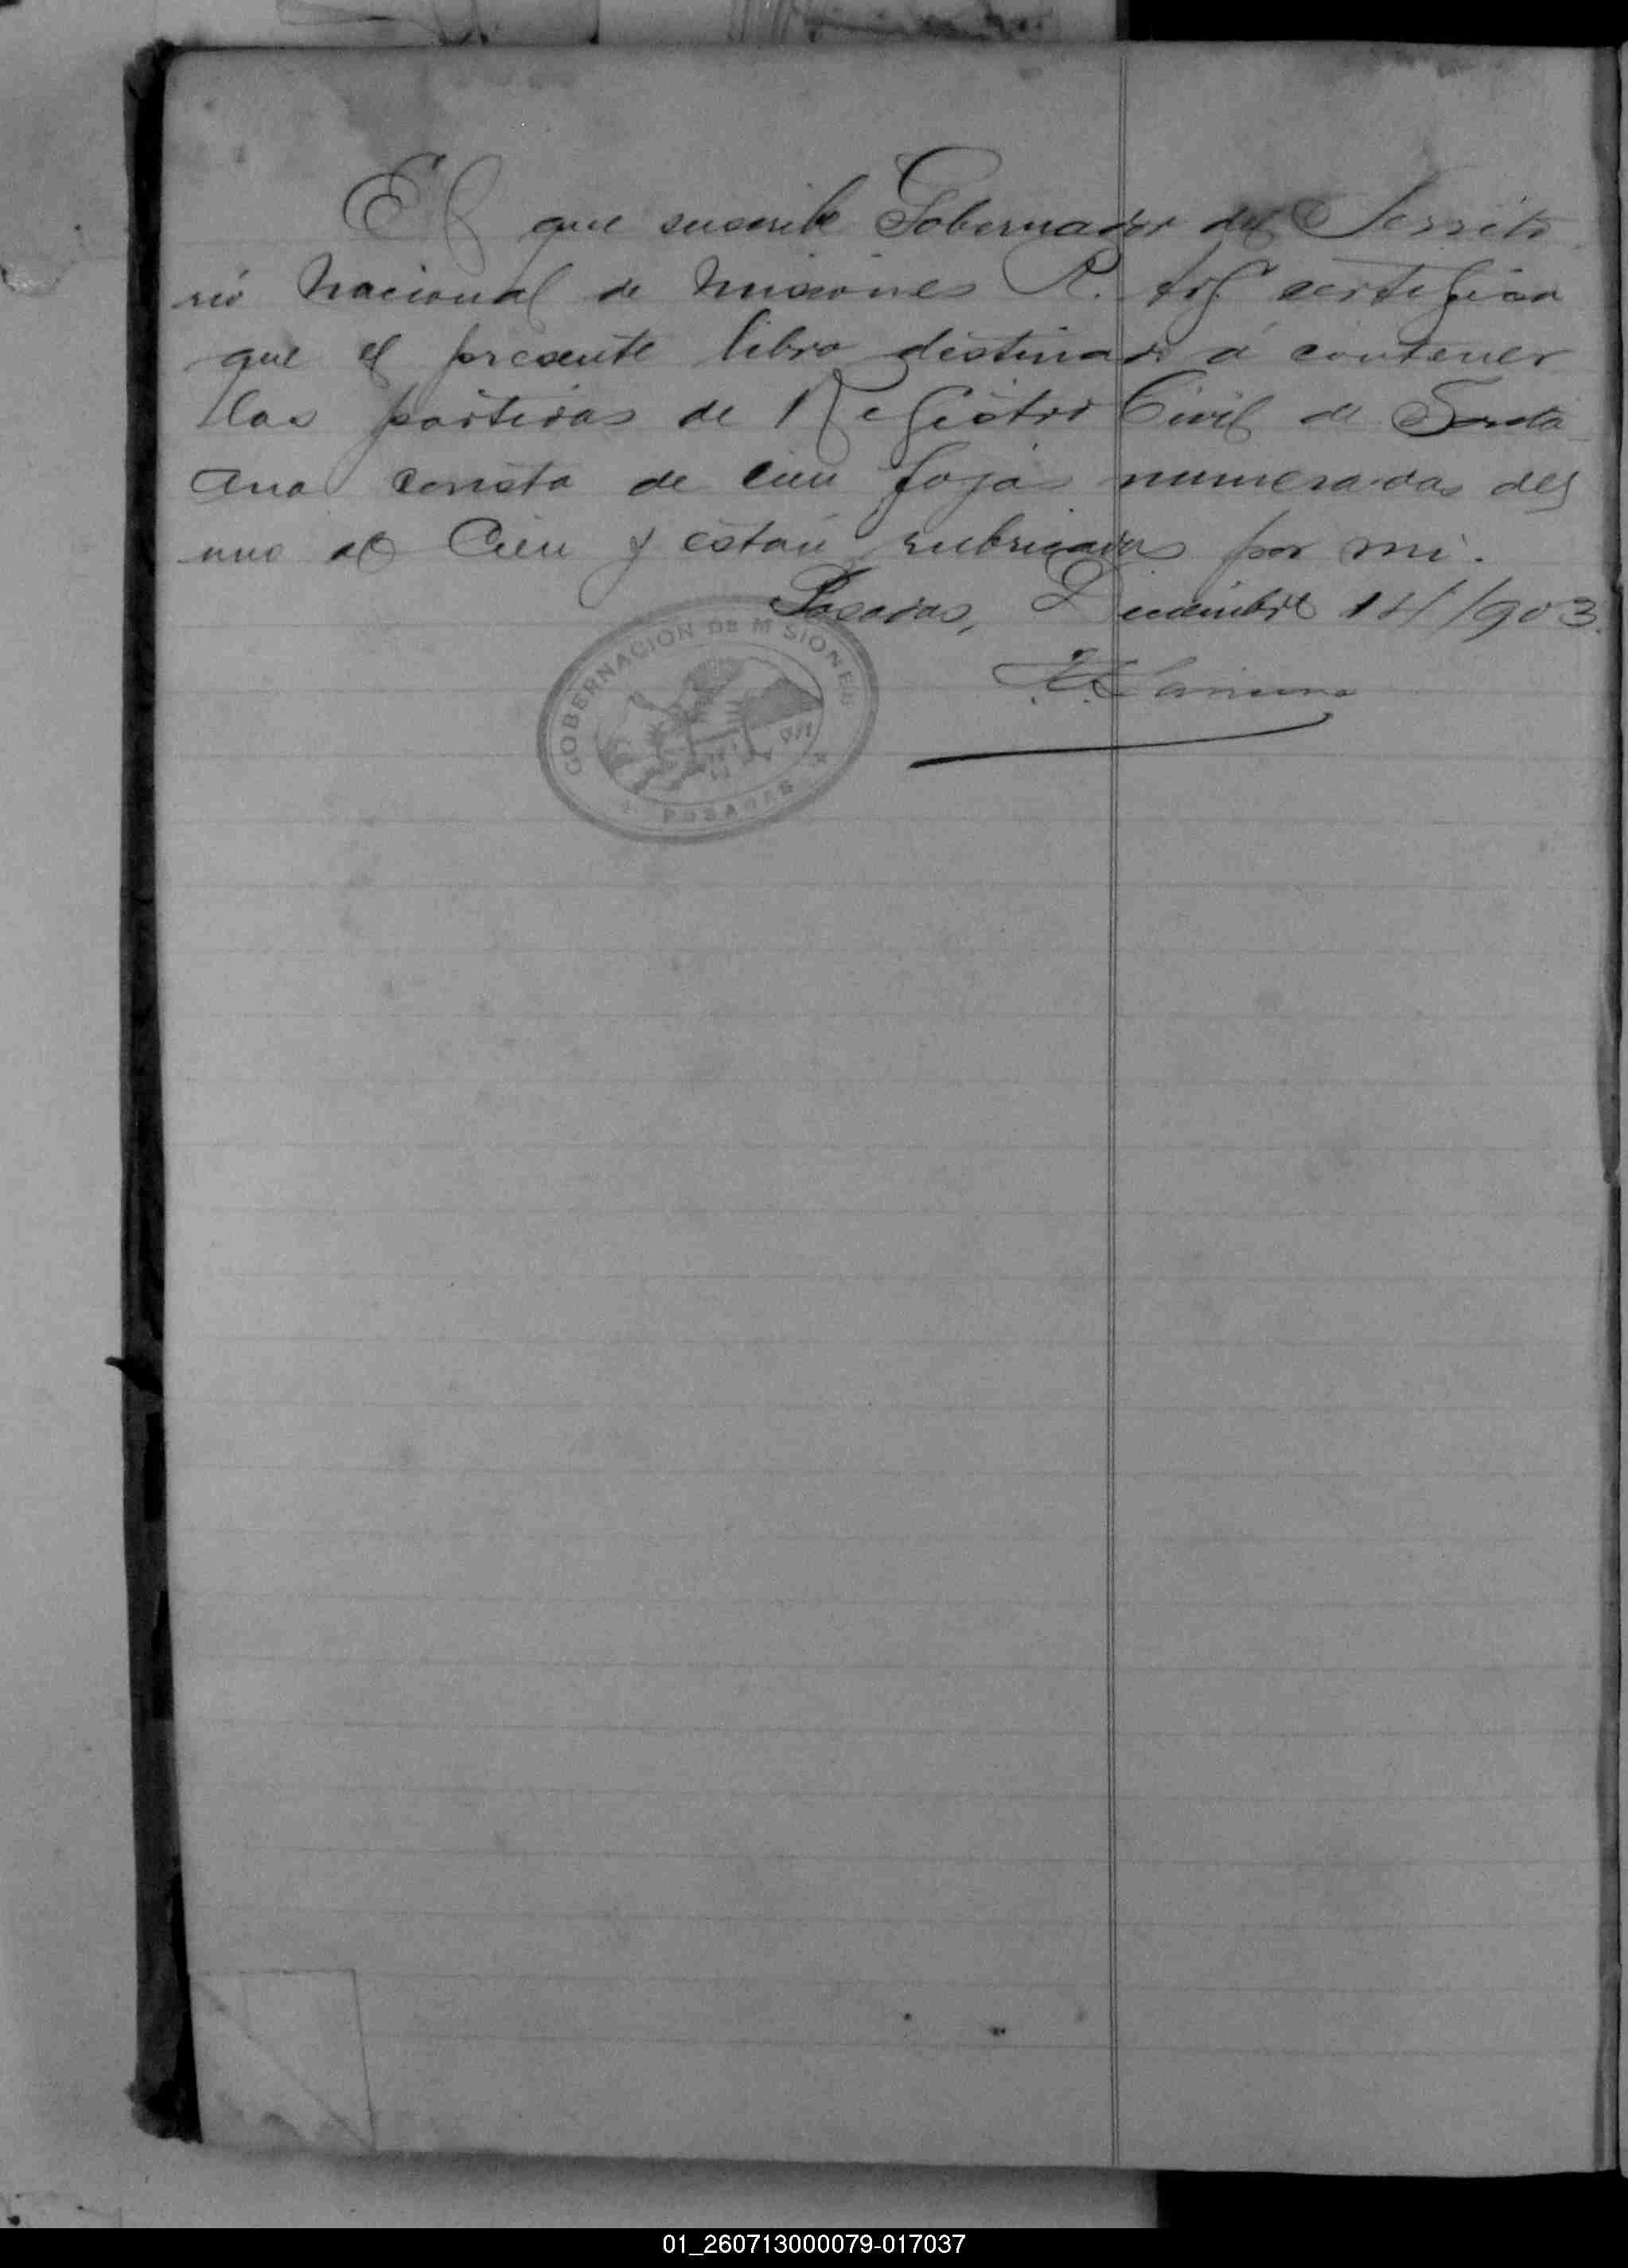 El que suscribe Gobernador del Territo
rio Nacional de Misiones R. Arg. certifica
que el presente libro destinado á contener
las partidas de Registro Civil de Santa
Ana consta de cien fojas numeradas del
uno al Cien y están rubricadas por mi.
Posadas, Diciembre 14/903.
GOBERNACION DE MISIONES
POSADAS
01_260713000079-017037